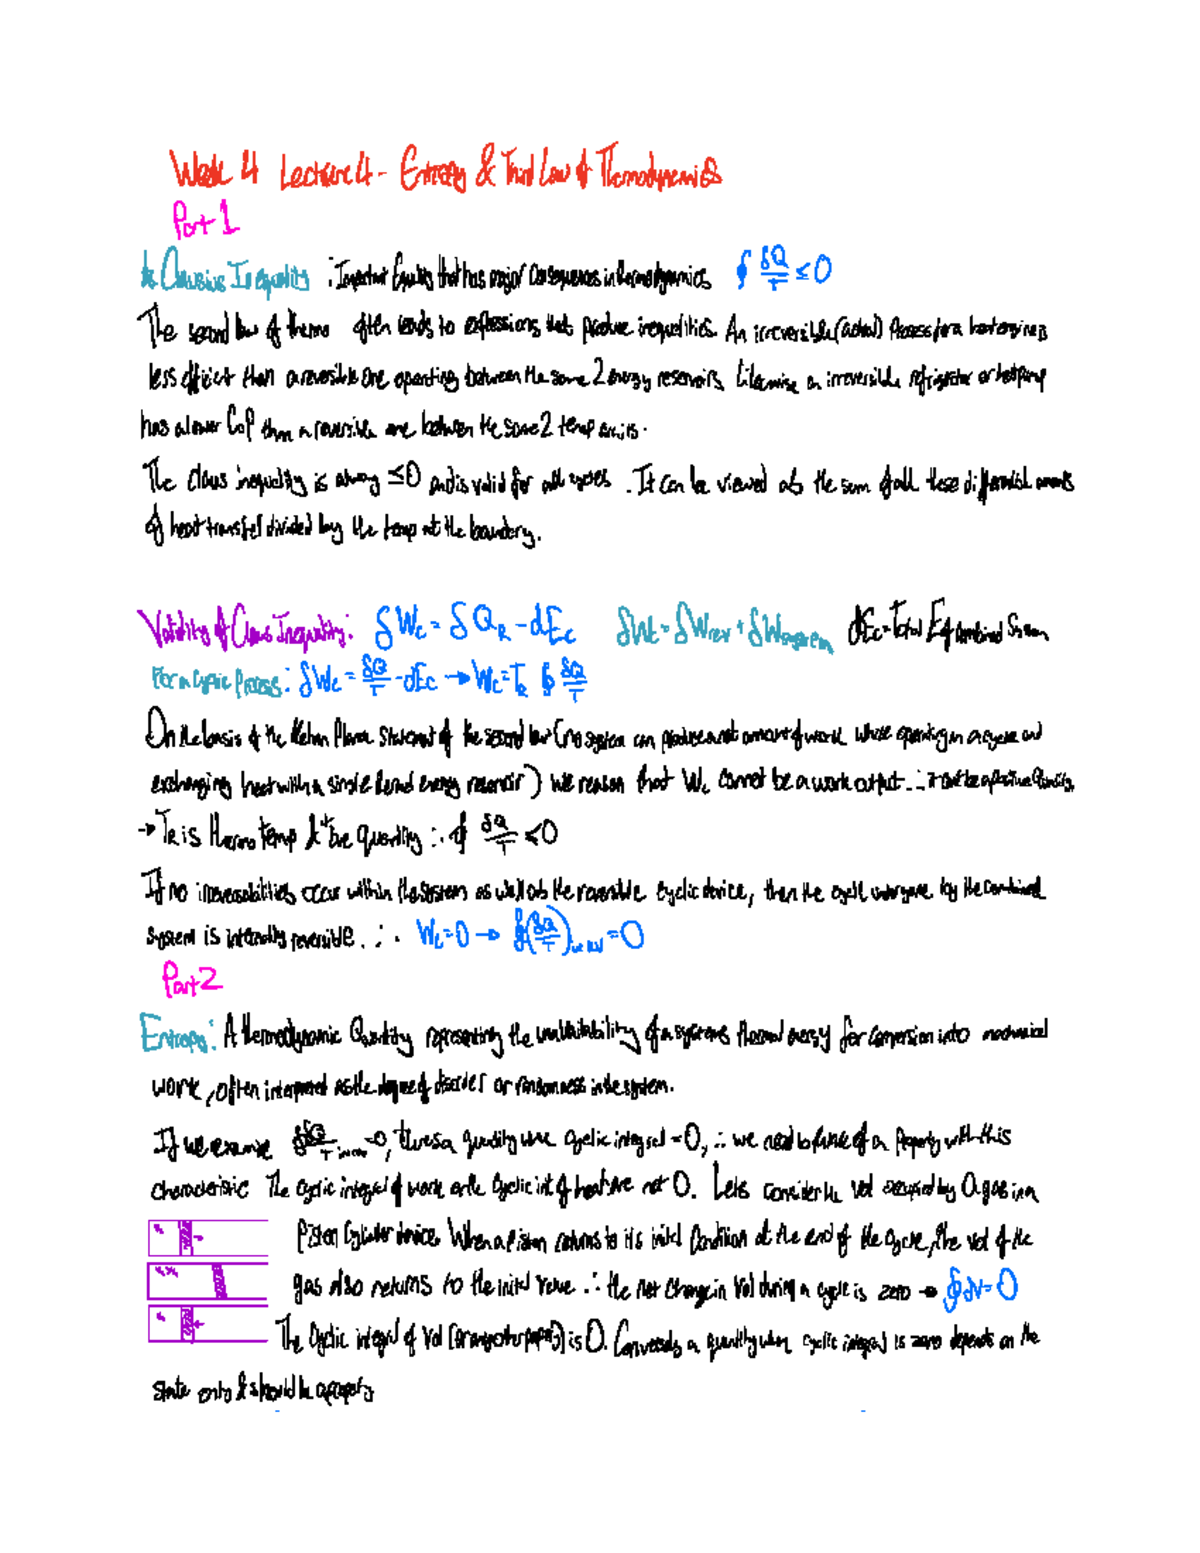 Week 4 Lecture 4 - Entropy & Third Law of Thermodynamics
Part 1
Clausius Inequality : Important Equality that has major consequences in thermodynamics ∮ δQ/T ≤ 0
The second law of thermo often leads to expressions that produce inequalities. An irreversible (actual) Process for a heat engine is
less efficient than a reversible one operating between the same 2 energy reservoirs. Likewise an irreversible refrigerator or heat pump
has a lower CoP than a reversible one between the same 2 temp
The Claus inequality is always ≤0 and is valid for all cycles. It can be viewed as the sum of all these differential amounts
of heat transfer divided by the temp at the boundary.
Validity of Claus Inequality: δWc = δQR - dEc δWc = δWrev + δWsystem dEc = Total E of Combined System
For a Cyclic Process: δWc = δQ/T - dEc → Wc = TR ∮ δQ/T
On the basis of the Kelvin Planck Statement of the second law (no system can produce a net amount of work while operating in a cycle and
exchanging heat with a single thermal energy reservoir) We reason that Wc cannot be a work output ∴ it cant be a positive Quantity.
→ TR is thermo temp & +tve quantity ∴ ∮ δQ/T ≤ 0
If no irreversibilities occur within the system as well as the reversible cyclic device, then the cycle undergone by the combined
system is internally reversible. ∴ Wc = 0 → ∮(δQ/T)int rev = 0
Part 2
Entropy: A thermodynamic Quantity representing the unavailability of a systems thermal energy for conversion into mechanical
work, often interpreted as the degree of disorder or randomness in the system.
If we examine ∮δQ/T int rev = 0, theres a quantity whose cyclic integral = 0, ∴ we need to think of a Property with this
characteristic The cyclic integral of work or the cyclic int of heat are not 0. Lets consider the vol occupied by a gas in a
Piston Cylinder device. When a Piston returns to its initial Condition at the end of the cycle, the vol of the
gas also returns to the initial value ∴ the net change in Vol during a cycle is zero → ∮dV = 0
The Cyclic integral of Vol (or any other property) is 0. Conversely a quantity whose cyclic integral is zero depends on the
state only & should be a property